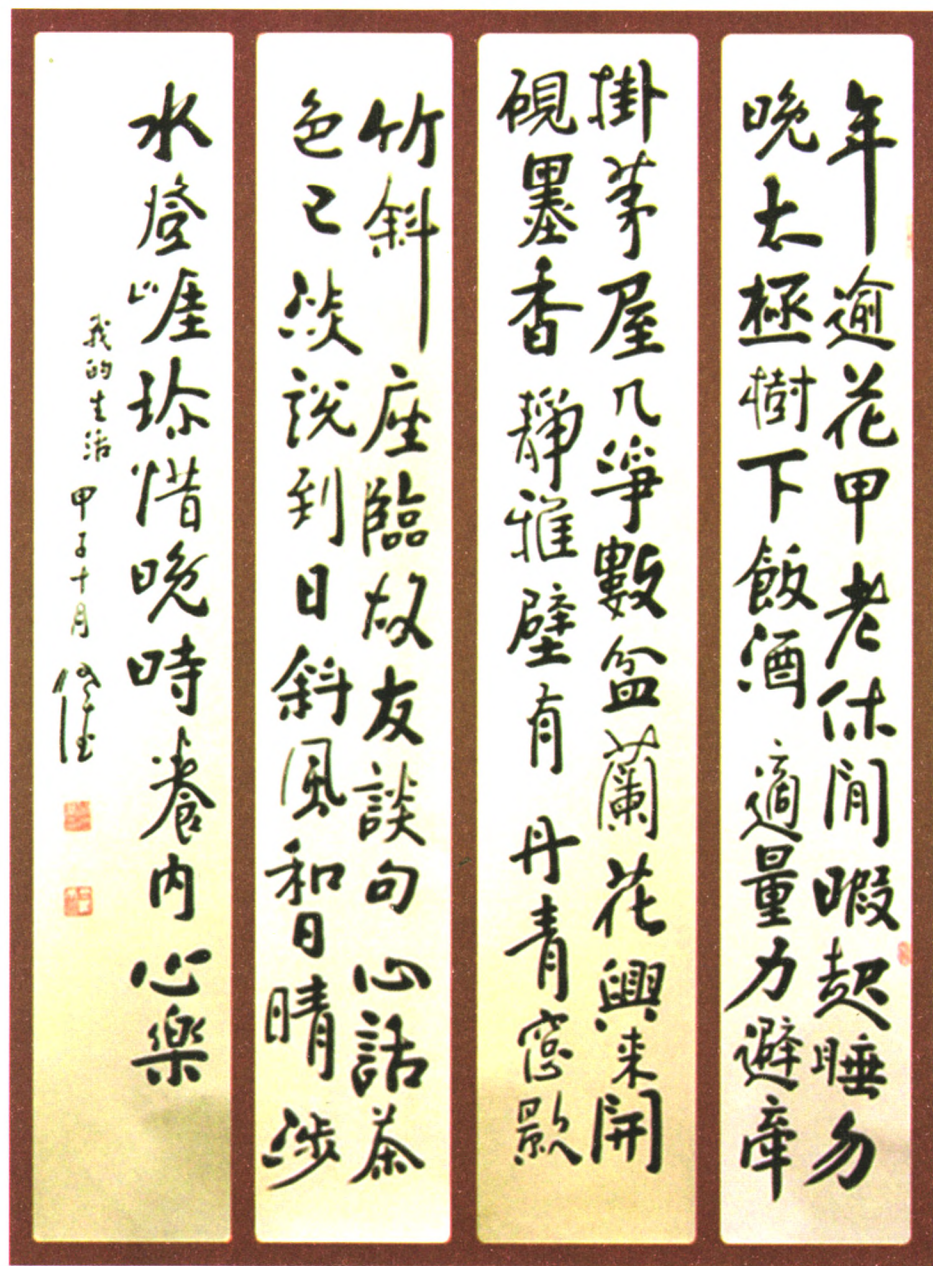 年逾花甲老休閒暇起睡勿
晚太極樹下飯酒適量力避牽
掛茅屋几爭數盆蘭花興來開
硯墨香靜雅壁有丹青窓歘
竹斜座臨故友談句心話茶
色已淡說到日斜風和日晴涉
水登崖珍惜晚時養內心樂
我的生活甲子十月